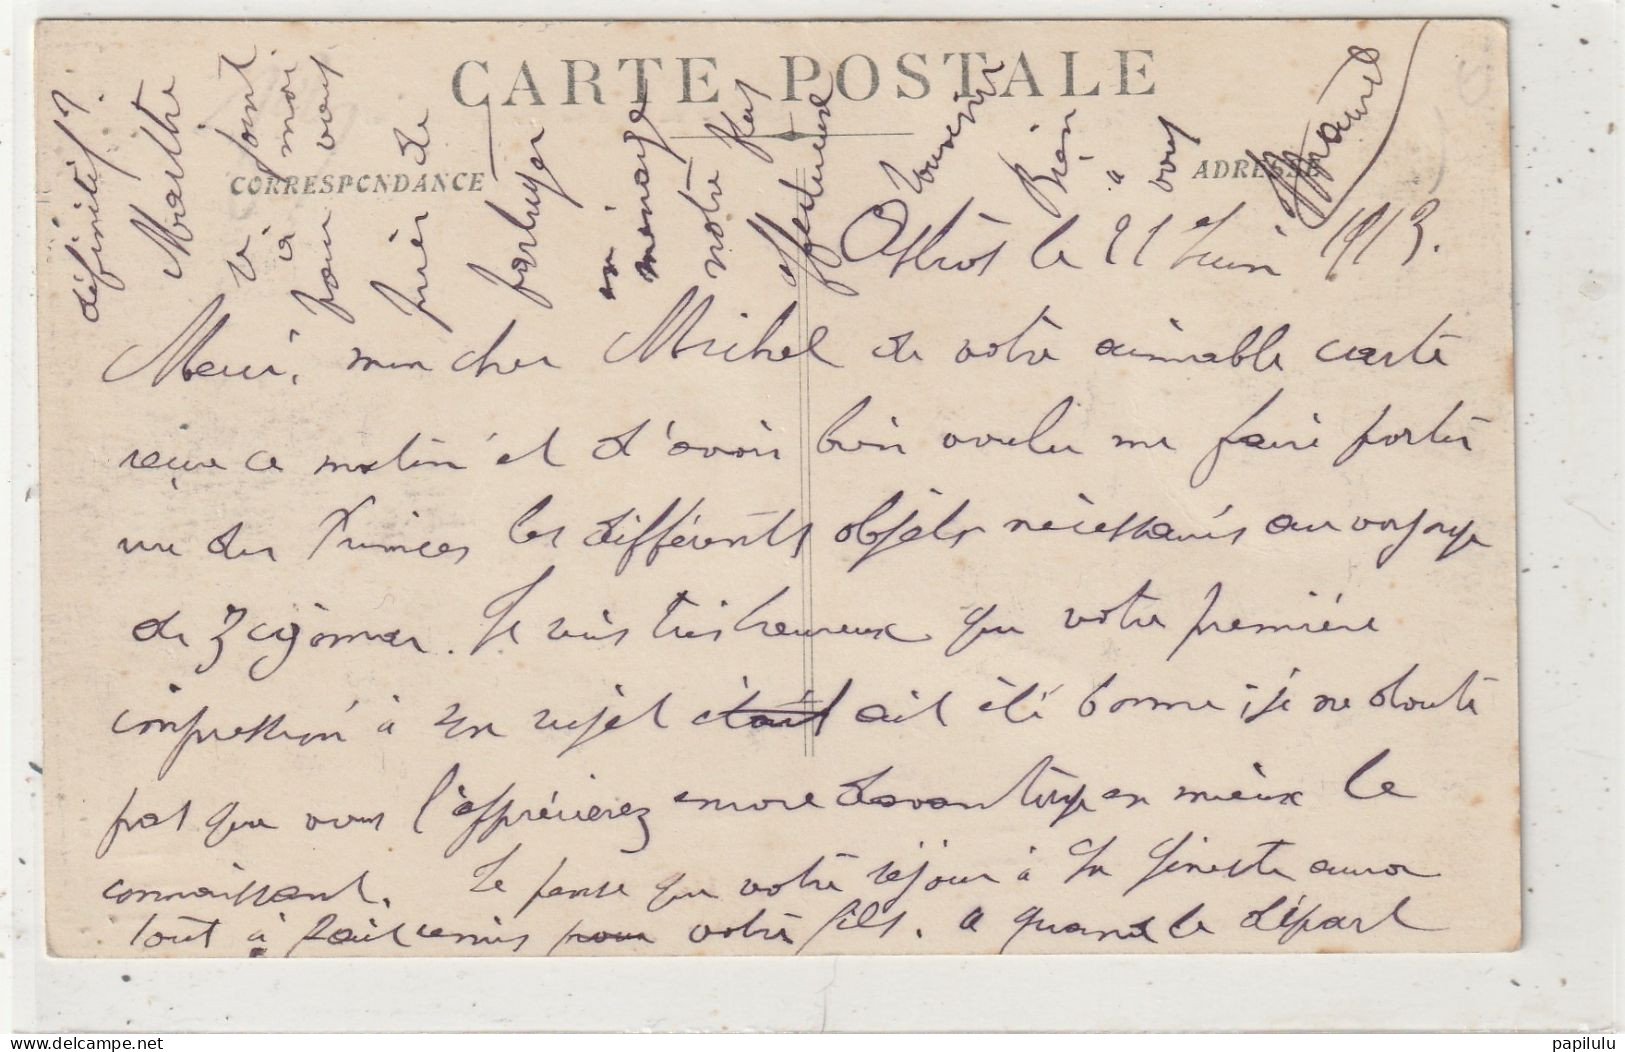 CARTE POSTALE
CORRESPONDANCE
ADRESSE
le 21 Juin 1913.
Merci, mon cher Michel de votre aimable carte
reçue ce matin et d'avoir bien voulu me faire porter
rue des Princes les différents objets nécessaires au voyage
de Zagomar. Je suis très heureux que votre première
impression à son sujet était ait été bonne ; je ne doute
pas que vous l'apprécierez encore davantage en mieux le
connaissant. Je pense que votre séjour à La Gineste aura
tout à fait remis pour votre fils. a quand le départ
définitif ?
Marthe
se joint
à moi
pour vous
prier de
partager
en
ménage
notre plus
affectueux
souvenir
Bien
à
vous
papilulu